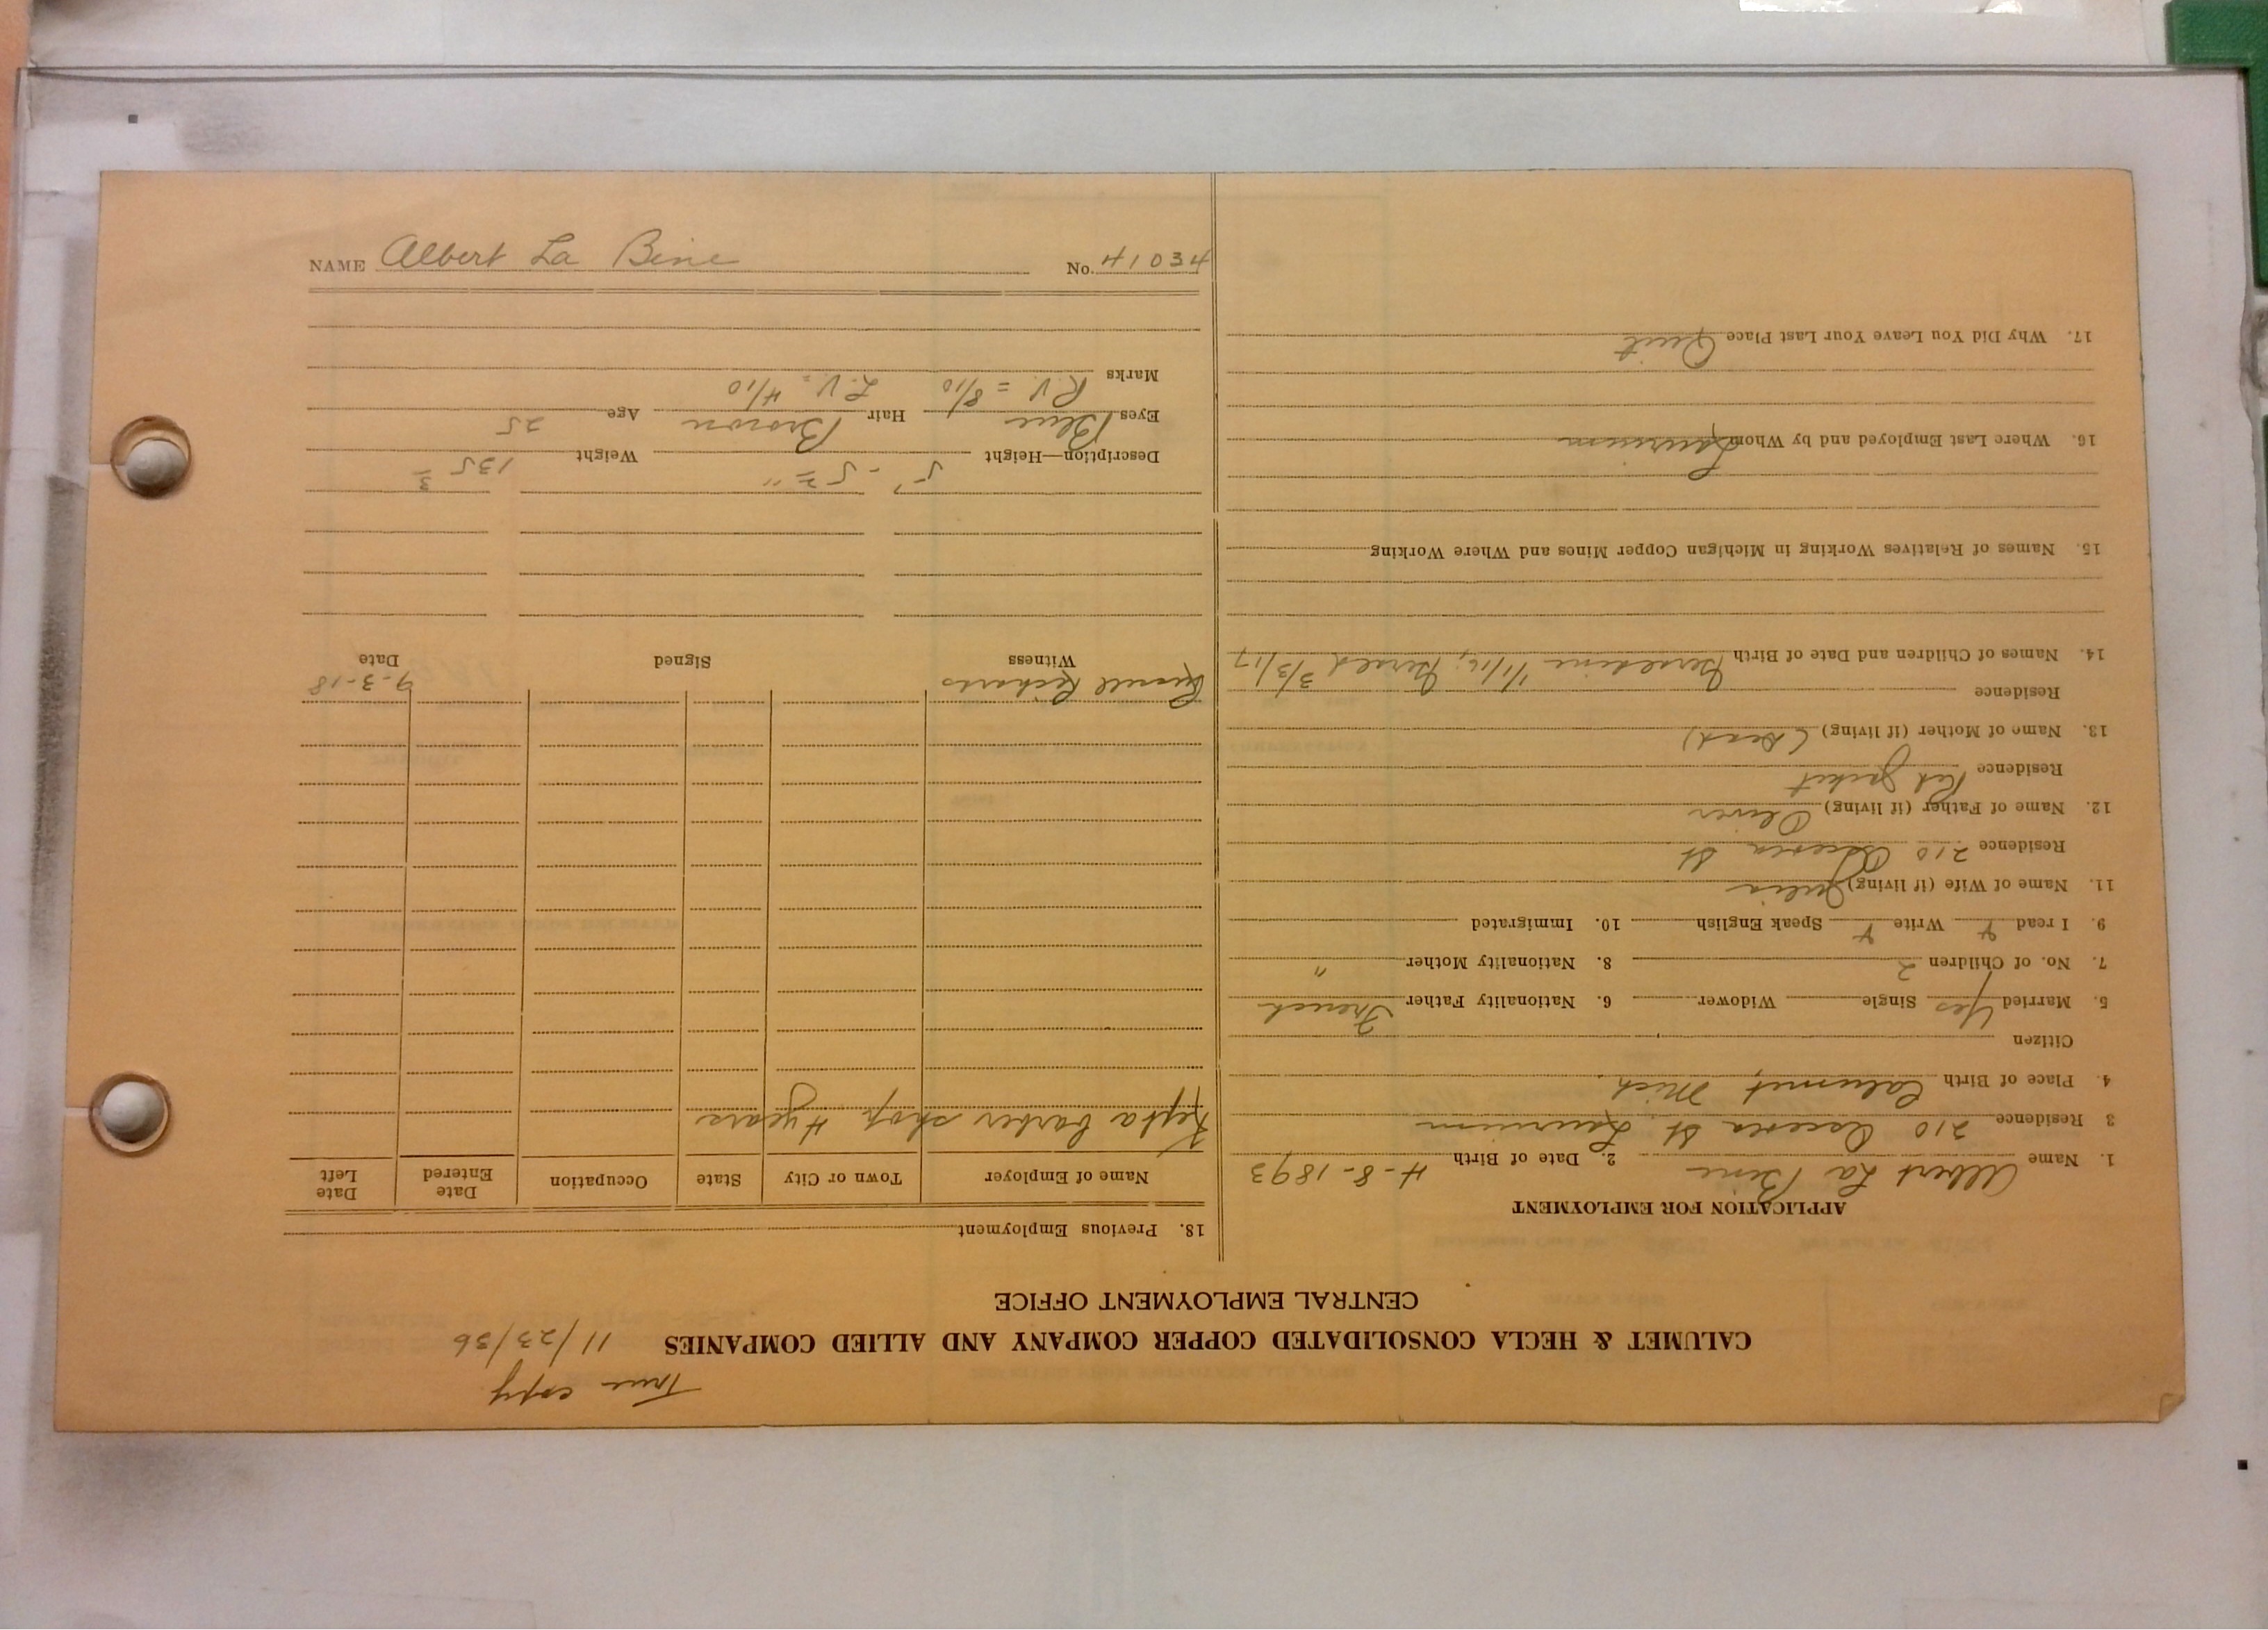 True copy
11/23/36
CALUMET & HECLA CONSOLIDATED COPPER COMPANY AND ALLIED COMPANIES
CENTRAL EMPLOYMENT OFFICE
APPLICATION FOR EMPLOYMENT
1. Name Albert La Bine 2. Date of Birth 4-8-1893
3 Residence 210 St. Laurium
4. Place of Birth Calumet, Mich.
Citizen
5. Married Yes Single Widower 6. Nationality Father French
7. No. of Children 2 8. Nationality Mother "
9. I read Y Write Y Speak English 10. Immigrated
11. Name of Wife (if living) Julia
Residence 210 St
12. Name of Father (if living) Oliver
Residence Red Jacket
13. Name of Mother (if living) (Dead)
Residence
14. Names of Children and Date of Birth Geraldine 1/1/16; Gerald 3/3/17
15. Names of Relatives Working in Michigan Copper Mines and Where Working
16. Where Last Employed and by Whom Laurium
17. Why Did You Leave Your Last Place Quit
18. Previous Employment
Name of Employer Town or City State Occupation Date Entered Date Left
Kept a barber shop 4 years
Richards 9-3-18
Witness Signed Date
5' - 5 = " 135 =
Description—Height Weight
Eyes Blue Hair Brown Age 25
R.V. = 8/10 L.V. = 4/10
Marks
NAME Albert La Bine No. 41034